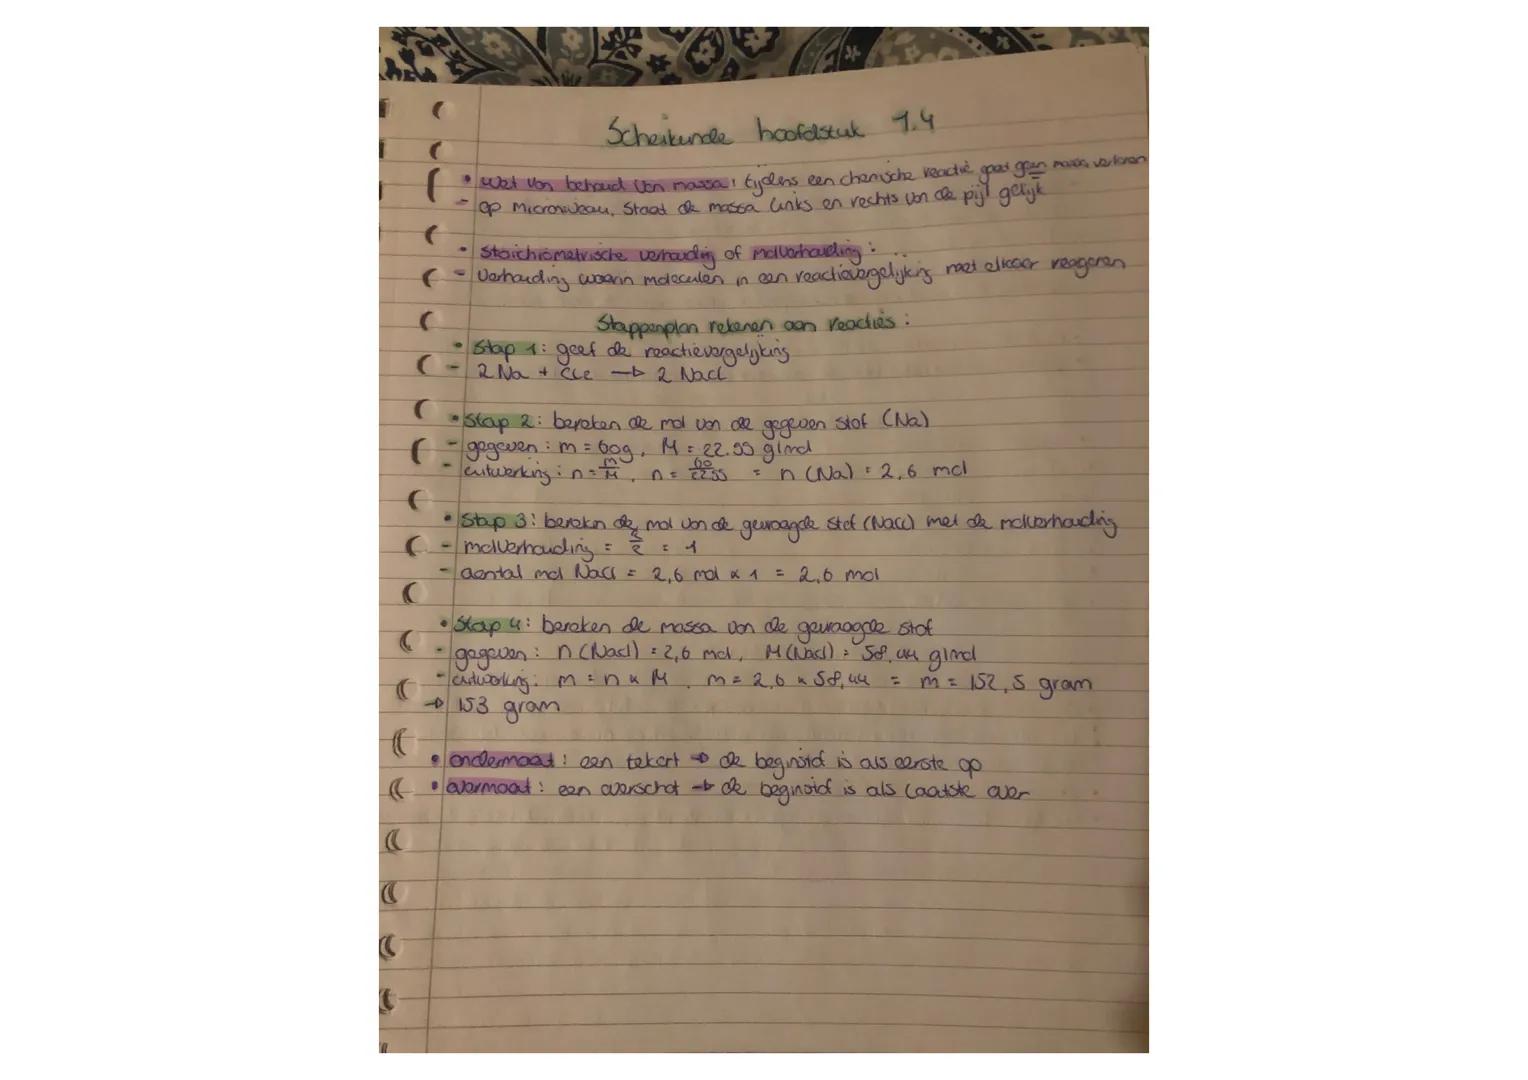 Scheikunde hoofdstuk 1.4
• Wet van behoud van massa: tijdens een chemische reactie gaat geen massa verloren
- op microniveau, staat de massa links en rechts van de pijl gelijk
• Stoichiometrische verhouding of molverhouding:
- Verhouding waarin moleculen in een reactievergelijking met elkaar reageren
Stappenplan rekenen aan reacties:
• Stap 1: geef de reactievergelijking
- 2 Na + Cl2 → 2 NaCl
• Stap 2: bereken de mol van de gegeven stof (Na)
- gegeven: m = 60g, M = 22.99 g/mol
- uitwerking: n = m/M, n = 60/22.99 = n (Na) = 2,6 mol
• Stap 3: bereken de mol van de gevraagde stof (NaCl) met de molverhouding
- molverhouding = 2/2 = 1
- aantal mol NaCl = 2,6 mol x 1 = 2,6 mol
• Stap 4: bereken de massa van de gevraagde stof
- gegeven: n (NaCl) = 2,6 mol, M (NaCl) = 58,44 g/mol
- uitwerking: m = n x M, m = 2,6 x 58,44 = m = 152,5 gram
→ 153 gram
• ondermaat: een tekort → de beginstof is als eerste op
• overmaat: een overschot → de beginstof is als laatste over